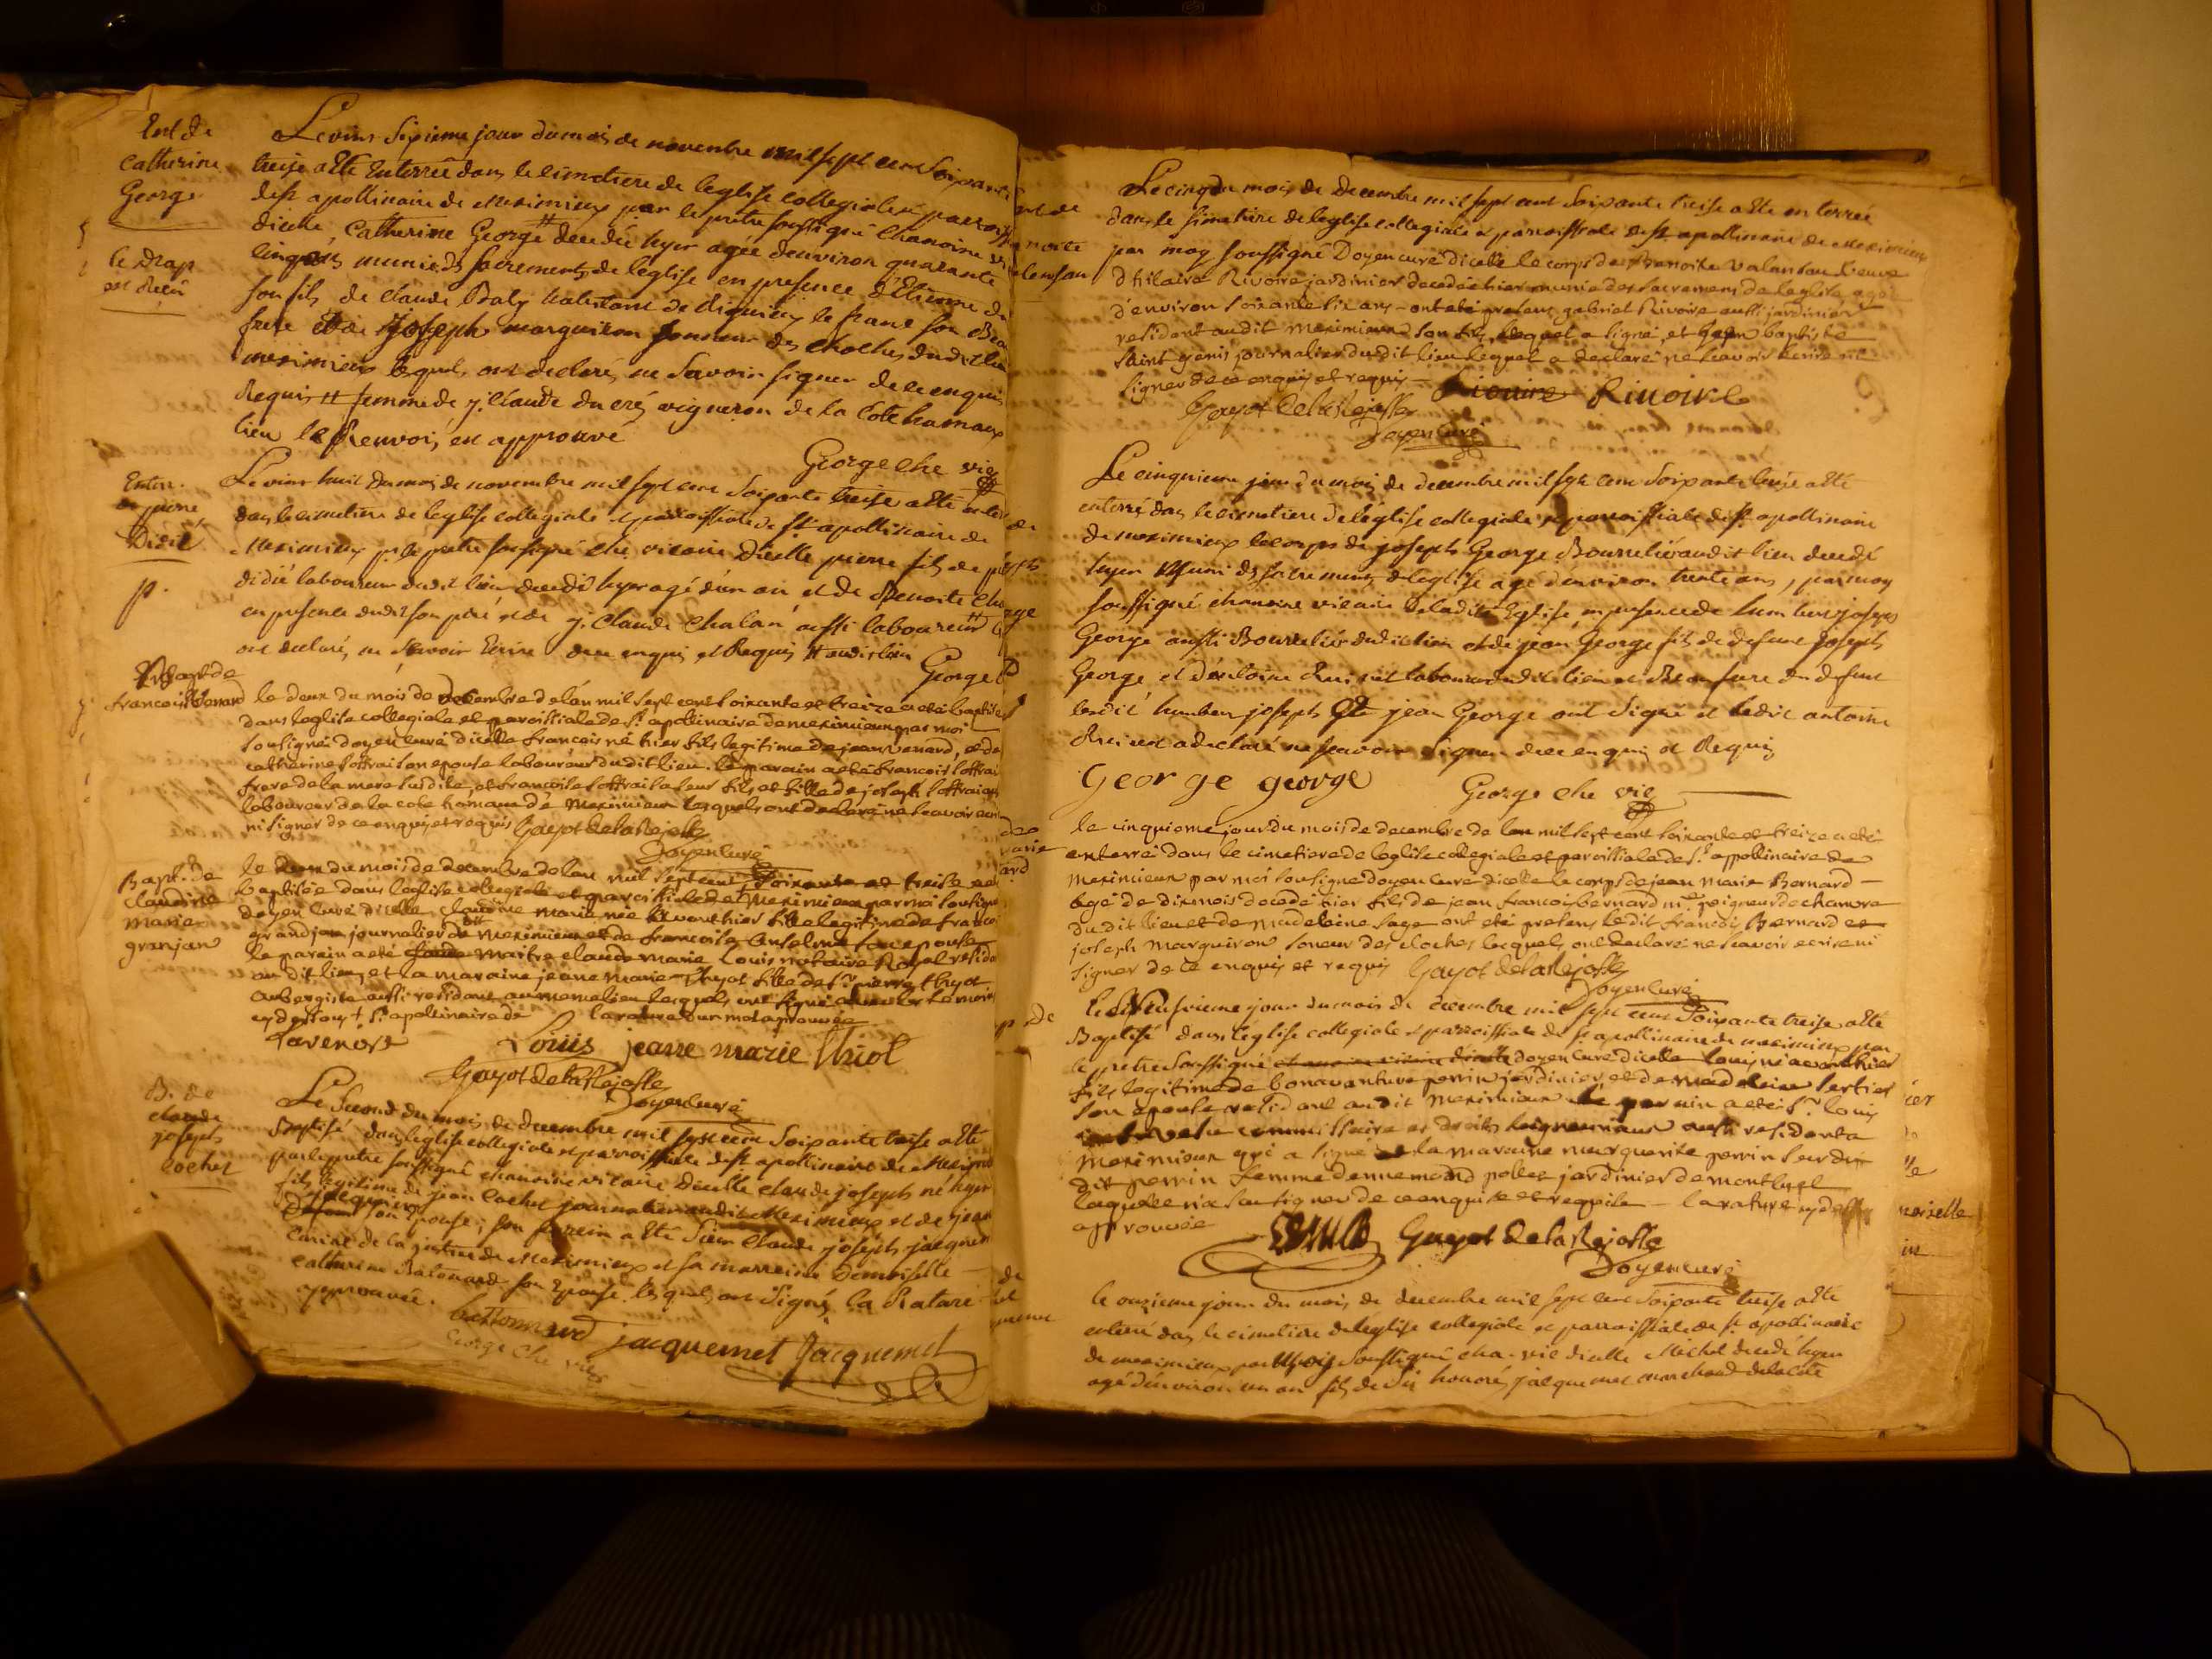 Ent de
Catherine
George
le drap
est deüe
Le vint sixieme jour du mois de novembre mil sept cent Soixante
treise a été Enterrée dans le cimetiere de leglise collegiale et parroiss
de st apollinaire de Meximieux par le prêtre soussigné Chanoine vi
dicelle Catherine George # decedée hyer agée denviron quarante
cinq ans munie ds sacrements de leglise en presence d'Etienne du
son fils de Claude Baly habitant de le franc son Beau
frere et de Joseph marguiron sonneur des cloches dudit lieu
meximieux lesquels ont declaré ne Savoir signer de ce enquis
Requis # femme de j. Claude du cré vigneron de la Cote hameau
lieu le Renvoi est approuvé
George che vic
Enter.
de pierre
Didié
p.
Le vint huit du mois de novembre mil sept cent Soixante treise a été enter
dans le cimetiere de leglise collegiale et parroissiale de st apollinaire de
Meximieux p. le prêtre soussigné che vicaire dicelle pierre fils de
didié laboureur dudit lieu decedé hyer agé d'un an et de Benoite
en presence dudit son pere et de j. Claude Chalan aussi laboureur #
ont declaré ne Savoir Ecrire de ce enquis et Requis # audit lieu
George
Bapt de
francois Venard
le deux du mois de decembre de l'an mil sept cent soixante et treize a eté baptisé
dans leglise collegiale et paroissiale de st apollinaire de meximieux par moi
soussigné doyen curé dicelle francois né hier fils legitime de jean Venard, et de
catherine soffrai son epouse laboureur dudit lieu. le parain a eté francois soffrai
frere de la mere susdite, et francoise soffrai sa seur fils et fille de joseph soffrai
laboureur de la cote hameau de Meximieux lesquels ont declaré ne scavoir ecrire
ni signer de ce enquis et requis Gayot de la Rejasse
Doyen curé
Bapt. de
Claudine
Marie
granjan
le deux du mois de decembre de lan mil sept cent soixante et treise a eté
baptisée dans leglise collegiale et paroissiale de † Meximieux par moi soussigné
doyen curé dicelle claudine marie née avant hier fille legitime de francoi
grandjan journalier de Meximieux et de francoise Anselme son epouse
le parain a eté maitre claude marie Louis notaire Royal reside
au dit lieu, et la maraine jeane marie Thuot fille de sr. pierre thuot
aubergiste aussi residant au meme lieu lesquels ont signé
cy dessous † St. apollinaire de la rature d'un mot aprouvée
Louis jeane marie thuot
Gayot de la Rejasse
Doyen curé
B. de
claude
joseph
Cochet
Le Second du mois de decembre mil sept cent Soixante treise a été
Baptisé dans leglise collegiale et parroissiale de st apollinaire de Meximi
par le prêtre soussigné chanoine vicaire dicelle claude joseph né hyer
fils legitime de jean Cochet journalier audit Meximieux et de jean
son Epouse, son parrein a été Sieur Claude joseph jacqueme
de la justice de Meximieux et sa marreine Demoiselle
catherine Batonard son Epouse lesquels ont Signé, la Rature
approuvée.
battonnard jacquemet Jacquemet
George che vic
Le cinq du mois de decembre mil sept cent soixante treise a été enterrée
dans le simetiere de leglise collegiale et paroissiale de st apollinaire de Meximieux
par moy soussigné Doyen curé dicelle le corps de Benoite Valansan veuve
d'hilaire Rivoire jardinier decedée hier munie des sacremens de leglise agée
d'environ soixante six ans – ont eté presens gabriel Rivoire aussi jardinier
residant audit Meximieux son fils lequel a signé, et jean baptiste
saint genis journalier dudit lieu lequel a declaré ne scavoir ecrire ni
signer de ce enquis et requis – Rivoire Rivoire
Gayot de la Rejasse
Doyen curé
Le cinquieme jour du mois de decembre mil sept cent Soixante treise a été
enterré dans le cimetiere de leglise collegiale et parroissiale de st apollinaire
de meximieux le corps de joseph George Bourrelier audit lieu decedé
hyer Muni ds sacrements de leglise agé d'environ trente ans, par moy
soussigné chanoine vicaire de ladite Eglise, en presence de humbert joseph
George aussi Bourrelier dudit lieu et de jean George fils de defunt joseph
George et d'antoine laboureur dudit lieu et Beaufrere du defunt
lesdit humbert joseph & jean George ont Signé et ledit antoine
a declaré ne scavoir signer de ce enquis et Requis
george george George che vic
le cinquieme jour du mois de decembre de lan mil sept cent soixante et treize a eté
enterré dans le cimetiere de leglise collegiale et paroissiale de st. appollinaire de
Meximieux par moi soussigné doyen curé dicelle le corps de jean Marie Bernard –
agé de dix mois decedé hier fils de jean francois bernard md. peigneur de chanvre
du dit lieu et de Madeleine Sage ont eté presens le dit francois Bernard et
joseph Marguiron soneur des cloches lesquels ont declaré ne scavoir ecrire ni
signer de ce enquis et requis Gayot de la Rejasse
Doyen curé
jour du mois de decembre mil sept cent Soixante treise a été
Baptisé dans leglise collegiale et parroissiale de st apollinaire de meximieux par
le prêtre soussigné doyen curé dicelle Louis né avant hier
fils legitime de bonaventure perrin jardinier et de Madeleine
son epouse residant audit Meximieux le parrain a eté sr. louis
commissaire es droits seigneuriaux aussi resident a
Meximieux qui a signé et la maraine marguerite perrin seur du
dit perrin femme dennemond pollet jardinier de montluel
laquelle n'a seu signer de ce enquise et requise – la rature
aprouvée Gayot de la Rejasse
Doyen curé
le onzieme jour du mois de decembre mil sept cent Soixante treise a été
enterré dans le cimetiere de leglise collegiale et parroissiale de st apollinaire
de meximieux par Moy soussigné cha. vic. dicelle Michel decedé hyer
agé d'environ un an fils de Sr. honoré jacquemet marchand de la Cote